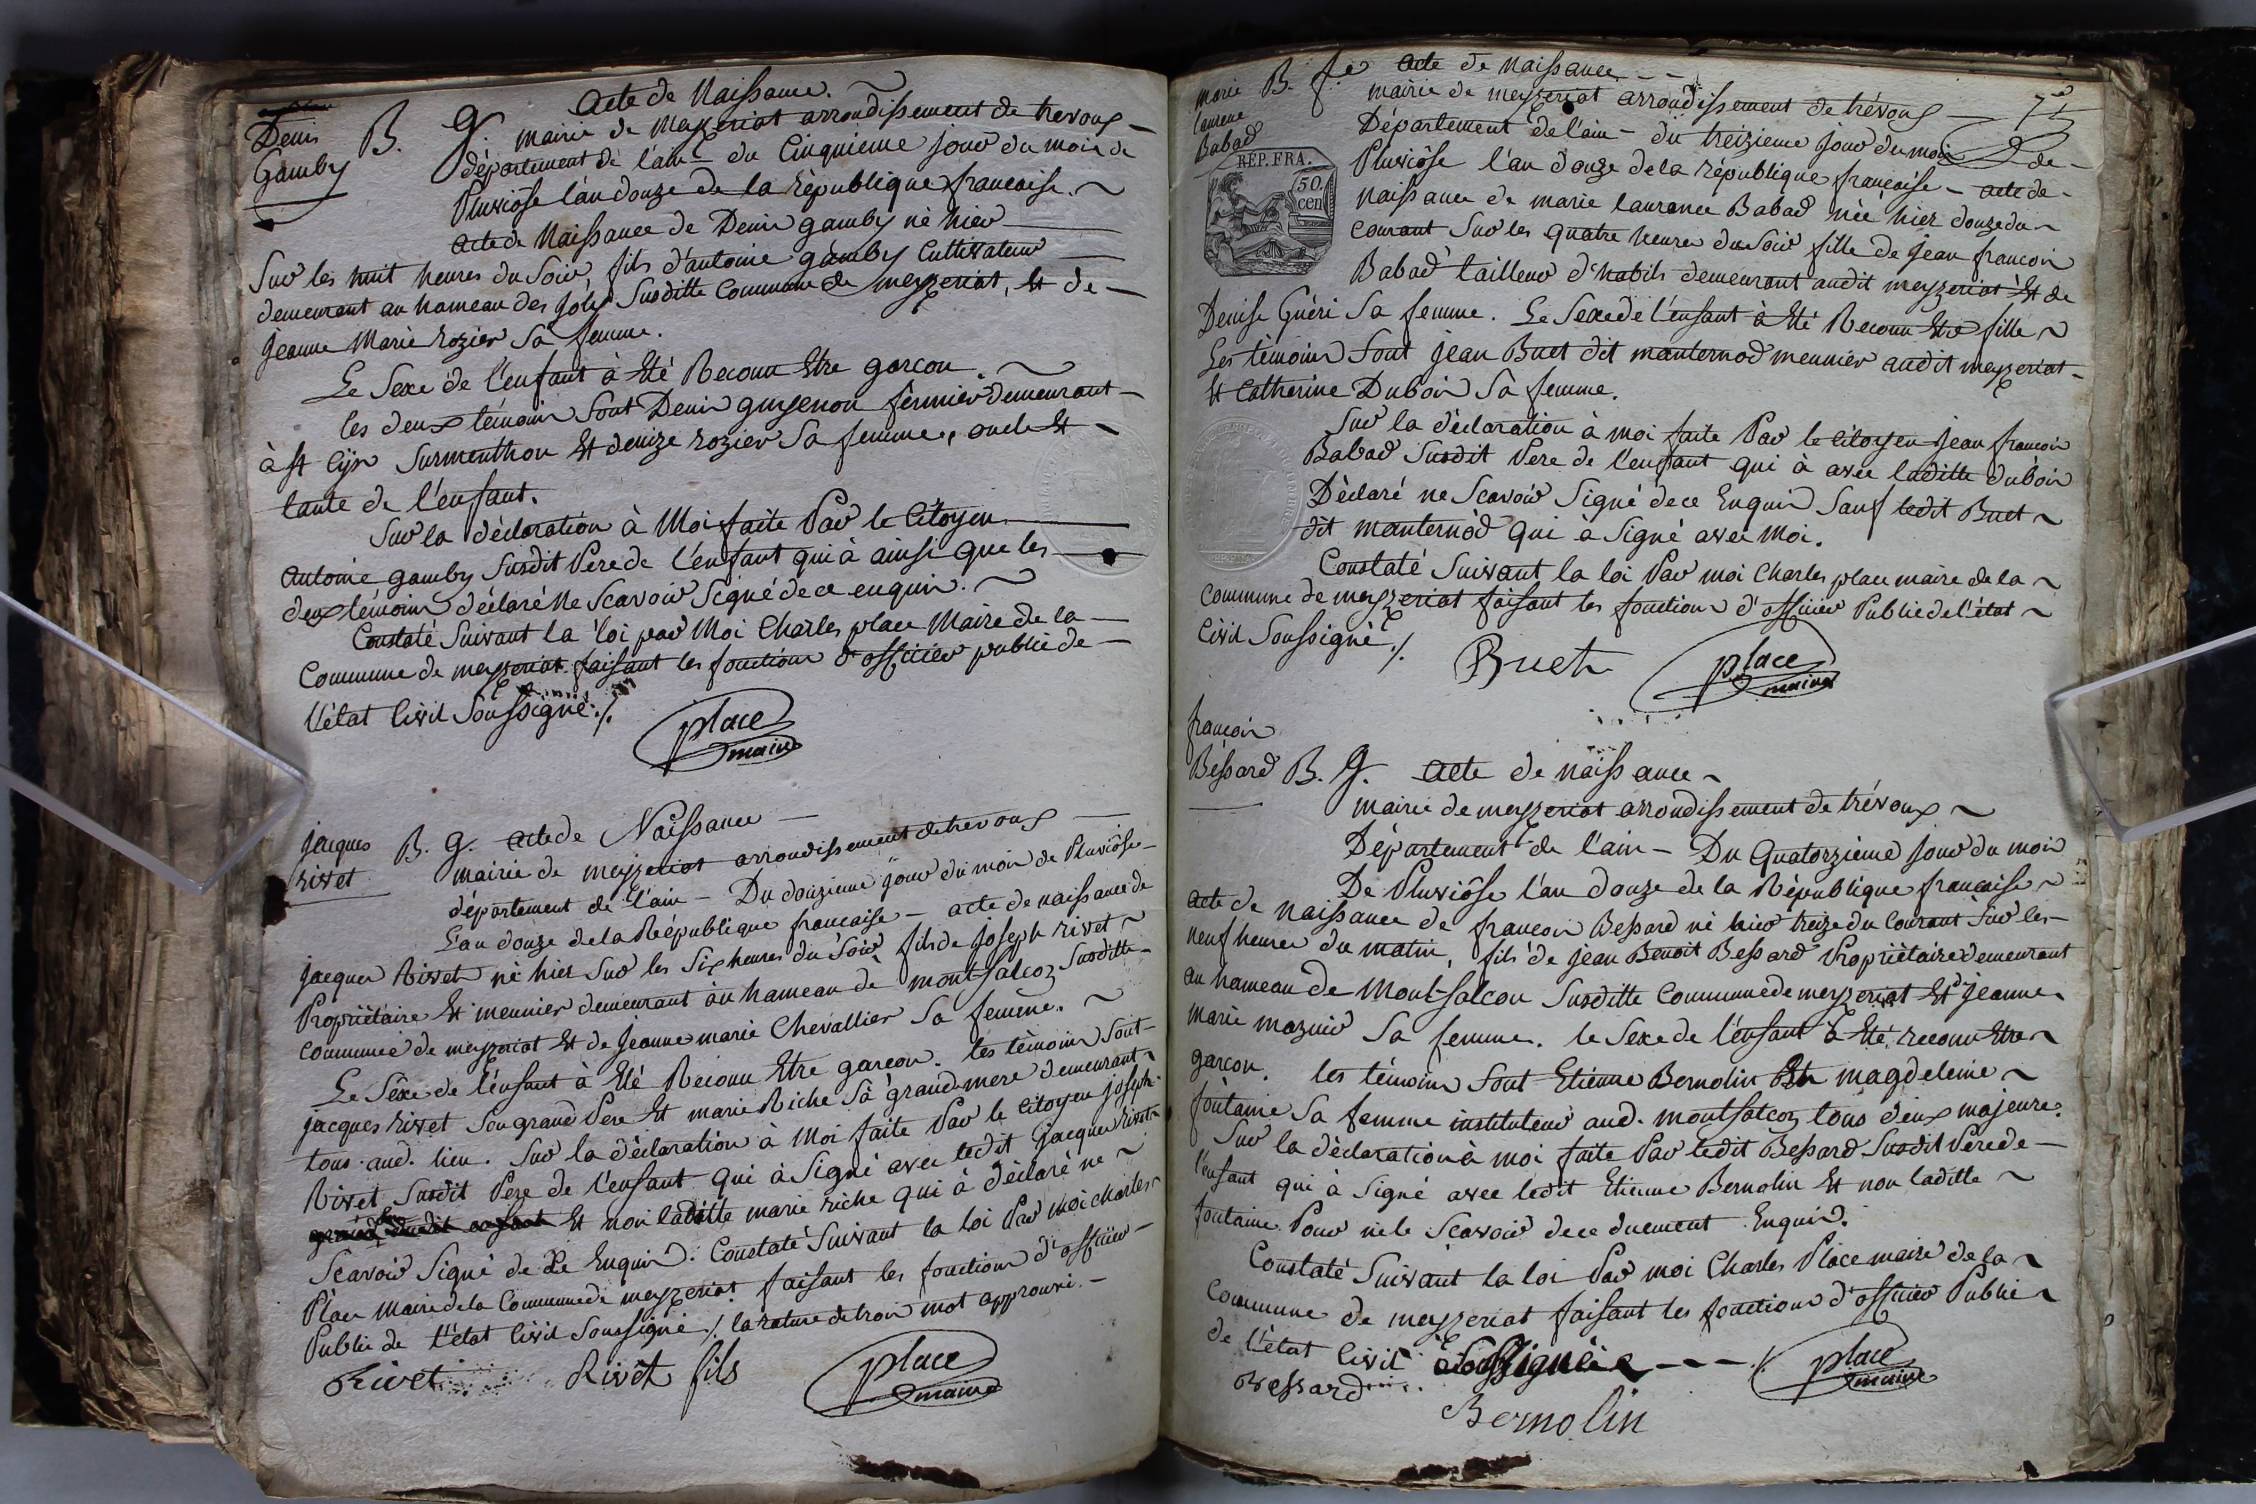 Denis
Gamby
B. G. acte de Naissance.
mairie de meyzeriat arrondissement de trevoux
département de l'ain – du Cinquieme jour du mois de
Pluviôse l'an douze de la République francaise.
acte de Naissance de Denis gamby né hier
Sur les huit heures du Soir, fils d'antoine gamby Cultivateur
demeurant au hameau des Susditte Commune de meyzeriat, Et de
jeanne Marie rozier Sa femme.
Le Sexe de l'enfant à Eté Reconnu Etre garcon.
les deux témoins Sont Denis guyenon fermier demeurant
à st Cyr Surmenthon Et denize rozier Sa femme, oncle Et
tante de l'enfant.
Sur la déclaration à Moi faite Par le Citoyen
antoine gamby Susdit Pere de l'enfant qui à ainsi que les
deux témoins déclaré Ne Scavoir Signé de ce enquis.
Constaté Suivant la loi par Moi Charles place Maire de la
Commune de meyzeriat faisant les fonctions d'officier public de
l'état Civil Soussigné ./.
place
maire
jacques
rivet
B. G. acte de Naissance
mairie de meyzeriat arrondissement de trevoux
département de l'ain – Du douzieme jour du mois de Pluviôse
L'an douze de la République francaise – acte de naissance de
jacques Rivet né hier Sur les Six heures du Soir, fils de joseph rivet
Propriétaire Et meunier demeurant au hameau de montfalcon Susditte
commune de meyzeriat Et de jeanne marie Chevallier Sa femme.
Le Sexe de l'enfant à Eté Reconu Etre garcon. les témoins Sont
jacques rivet Son grand Pere Et marie Riche Sa grand mere demeurant
tous aud. lieu. Sur la déclaration à Moi faite Par le Citoyen joseph
Rivet Susdit Pere de l'enfant qui à Signé avec ledit jacques Rivet
Et non laditte marie riche qui à déclaré ne
Scavoir Signé de ce Enquis. Constaté Suivant la loi Par moi charles
Place Maire de la Commune de meyzeriat faisant les fonctions d'officier
Public de l'état Civil Soussigné ./. la rature de trois mot approuvé.
Rivet Rivet fils place
maire
marie
laurence
Babad
B. f.e acte de naissance
mairie de meyzeriat arrondissement de trévoux
Département de l'ain – du treizieme jour du mois de
Pluviôse l'an douze de la république française – acte de
naissance de marie laurence Babad née hier douze du
courant Sur les quatre heures du Soir fille de jean francois
Babad tailleur d'habits demeurant audit meyzeriat Et de
REP. FRA.
50
cen
Denise Guéri Sa femme. Le Sexe de l'enfant à Eté Reconu Etre fille
Les témoins Sont jean Buet dit manternod meunier audit meyzeriat
Et Catherine Dubois Sa femme.
Sur la déclaration à moi faite Par le Citoyen jean francois
Babad Susdit Pere de l'enfant qui à avec laditte dubois
Déclaré ne Scavoir Signé de ce Enquis Sauf ledit Buet
dit manternod qui à Signé avec Moi.
Constaté Suivant la loi Par moi Charles place maire de la
commune de meyzeriat faisant les fonctions d'officier Public de l'état
Civil Soussigné ./.
Buet place
maire
francois
Bessard
B. G. acte de naissance
mairie de meyzeriat arrondissement de trévoux
Département de l'ain – Du Quatorzieme jour du mois
De Pluviôse l'an douze de la République francaise
acte de naissance de francois Bessard né hier treize du courant Sur les
neuf heures du matin, fils de jean Benoit Bessard Propriétaire demeurant
au hameau de Montfalcon Susditte Commune de meyzeriat Et d'jeanne
marie mazuir Sa femme. le Sexe de l'enfant à Eté reconu Etre
garcon. les témoins Sont Etienne Bernolin Et magdeleine
fontaine Sa femme instituteur aud. montfalcon tous deux majeurs.
Sur la déclaration à moi faite Par ledit Bessard Susdit Pere de
l'enfant qui à Signé avec ledit Etienne Bernolin Et non laditte
fontaine Pour ne le Scavoir de ce duement Enquis.
Constaté Suivant la loi Par moi Charles Place maire de la
Commune de meyzeriat faisant les fonctions d'officier Public
de l'état Civil Soussigné ./.
Bessard place
maire
Bernolin